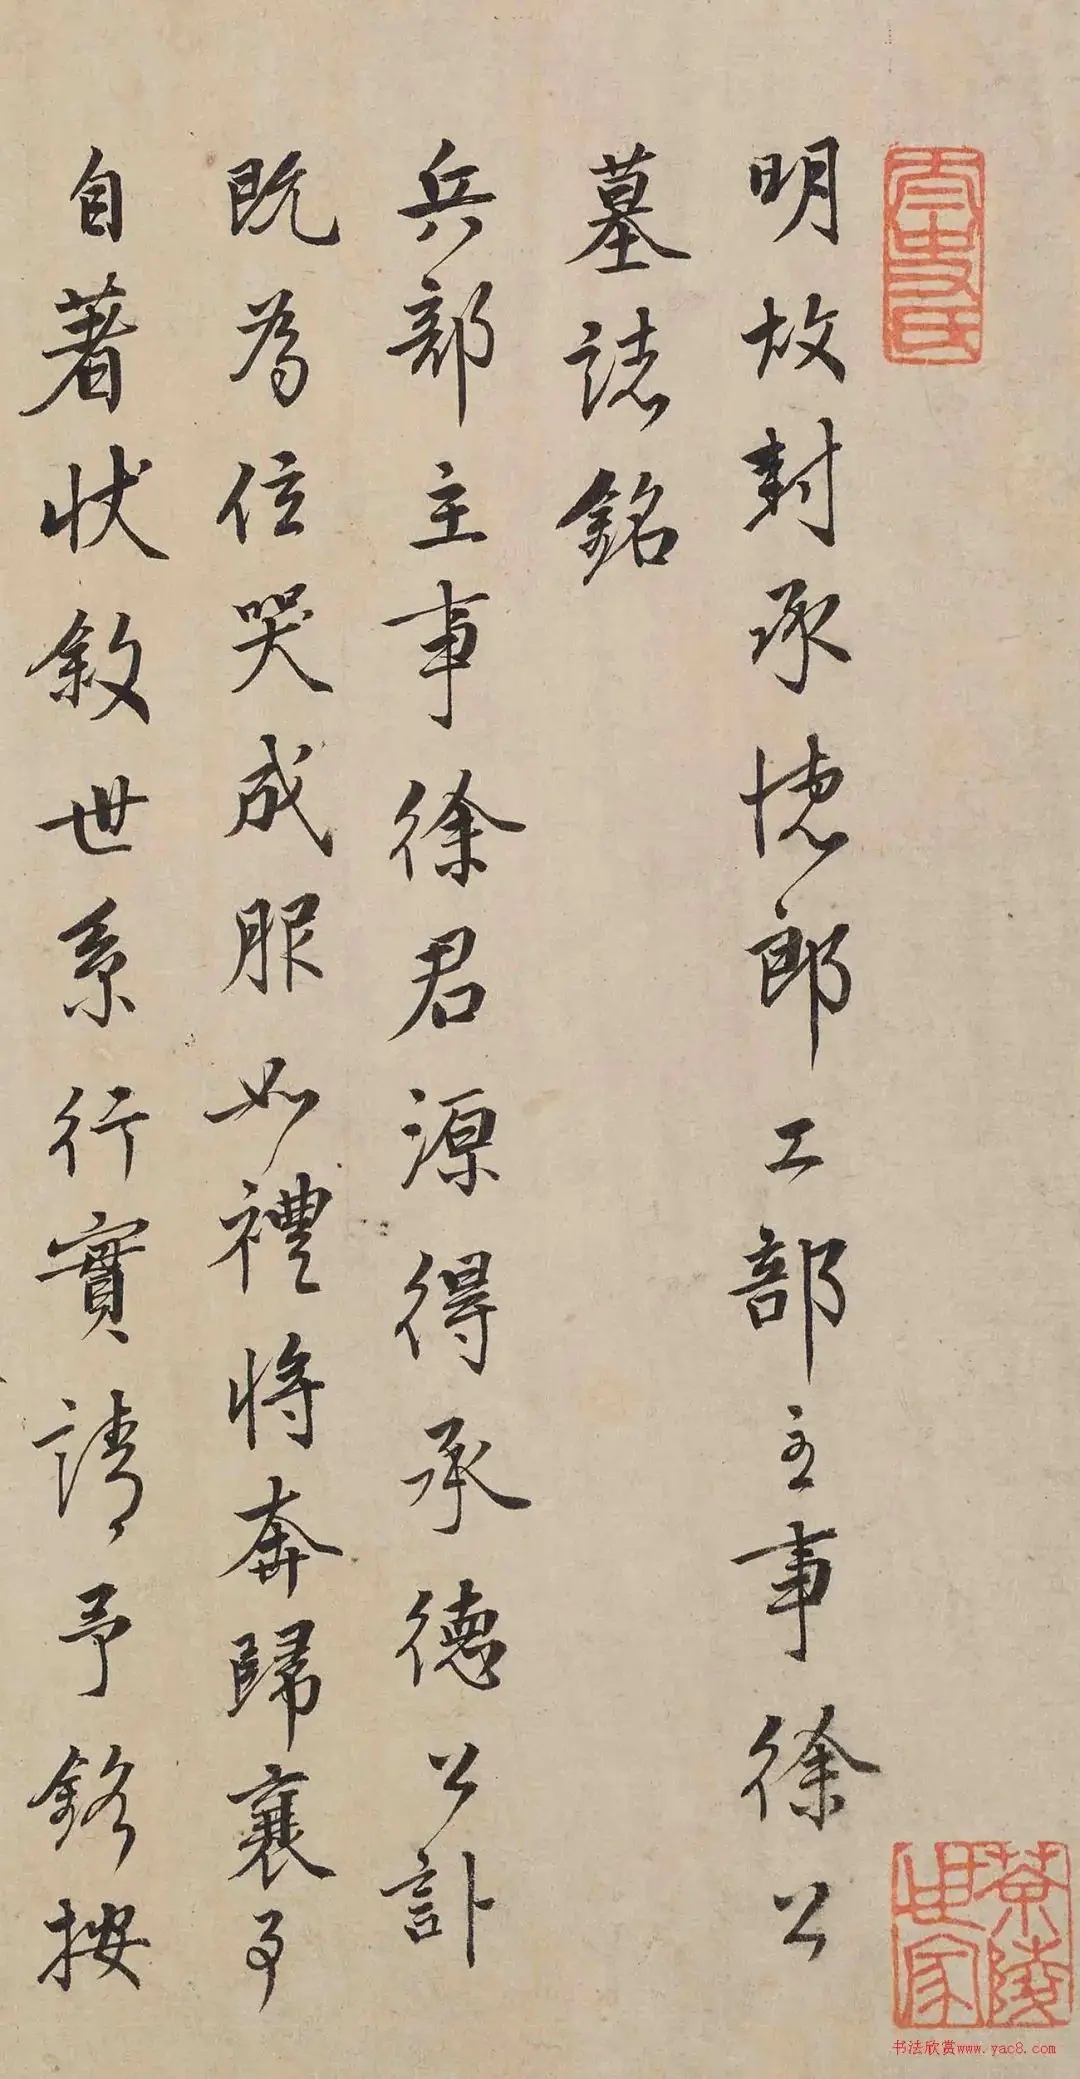 太史氏
明故封承德郎工部主事徐公
墓誌銘
兵部主事徐君源得承德公訃
既為位哭成服如禮將奔歸襄事
自著狀敘世系行實請予銘按
茶陵世家
书法欣赏www.yac8.com